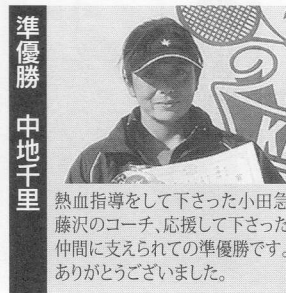 準優勝 中地千里
熱血指導をして下さった小田急
藤沢のコーチ、応援して下さった
仲間に支えられての準優勝です。
ありがとうございました。